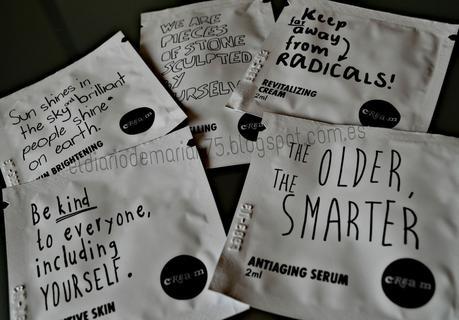 WE ARE
PIECES
OF STONE
SCULPTED
BY
OURSELVES
LLING
cream
Keep
far
away
from
RADICALS!
REVITALIZING
CREAM
2ml
cream
Sun shines in
the sky and brilliant
people shine
on earth.
BRIGHTENING
cream
eldiariodemarian75.blogspot.com.es
Be kind
to everyone,
including
YOURSELF.
TIVE SKIN
cream
THE OLDER,
THE
SMARTER
ANTIAGING SERUM
2ml
cream